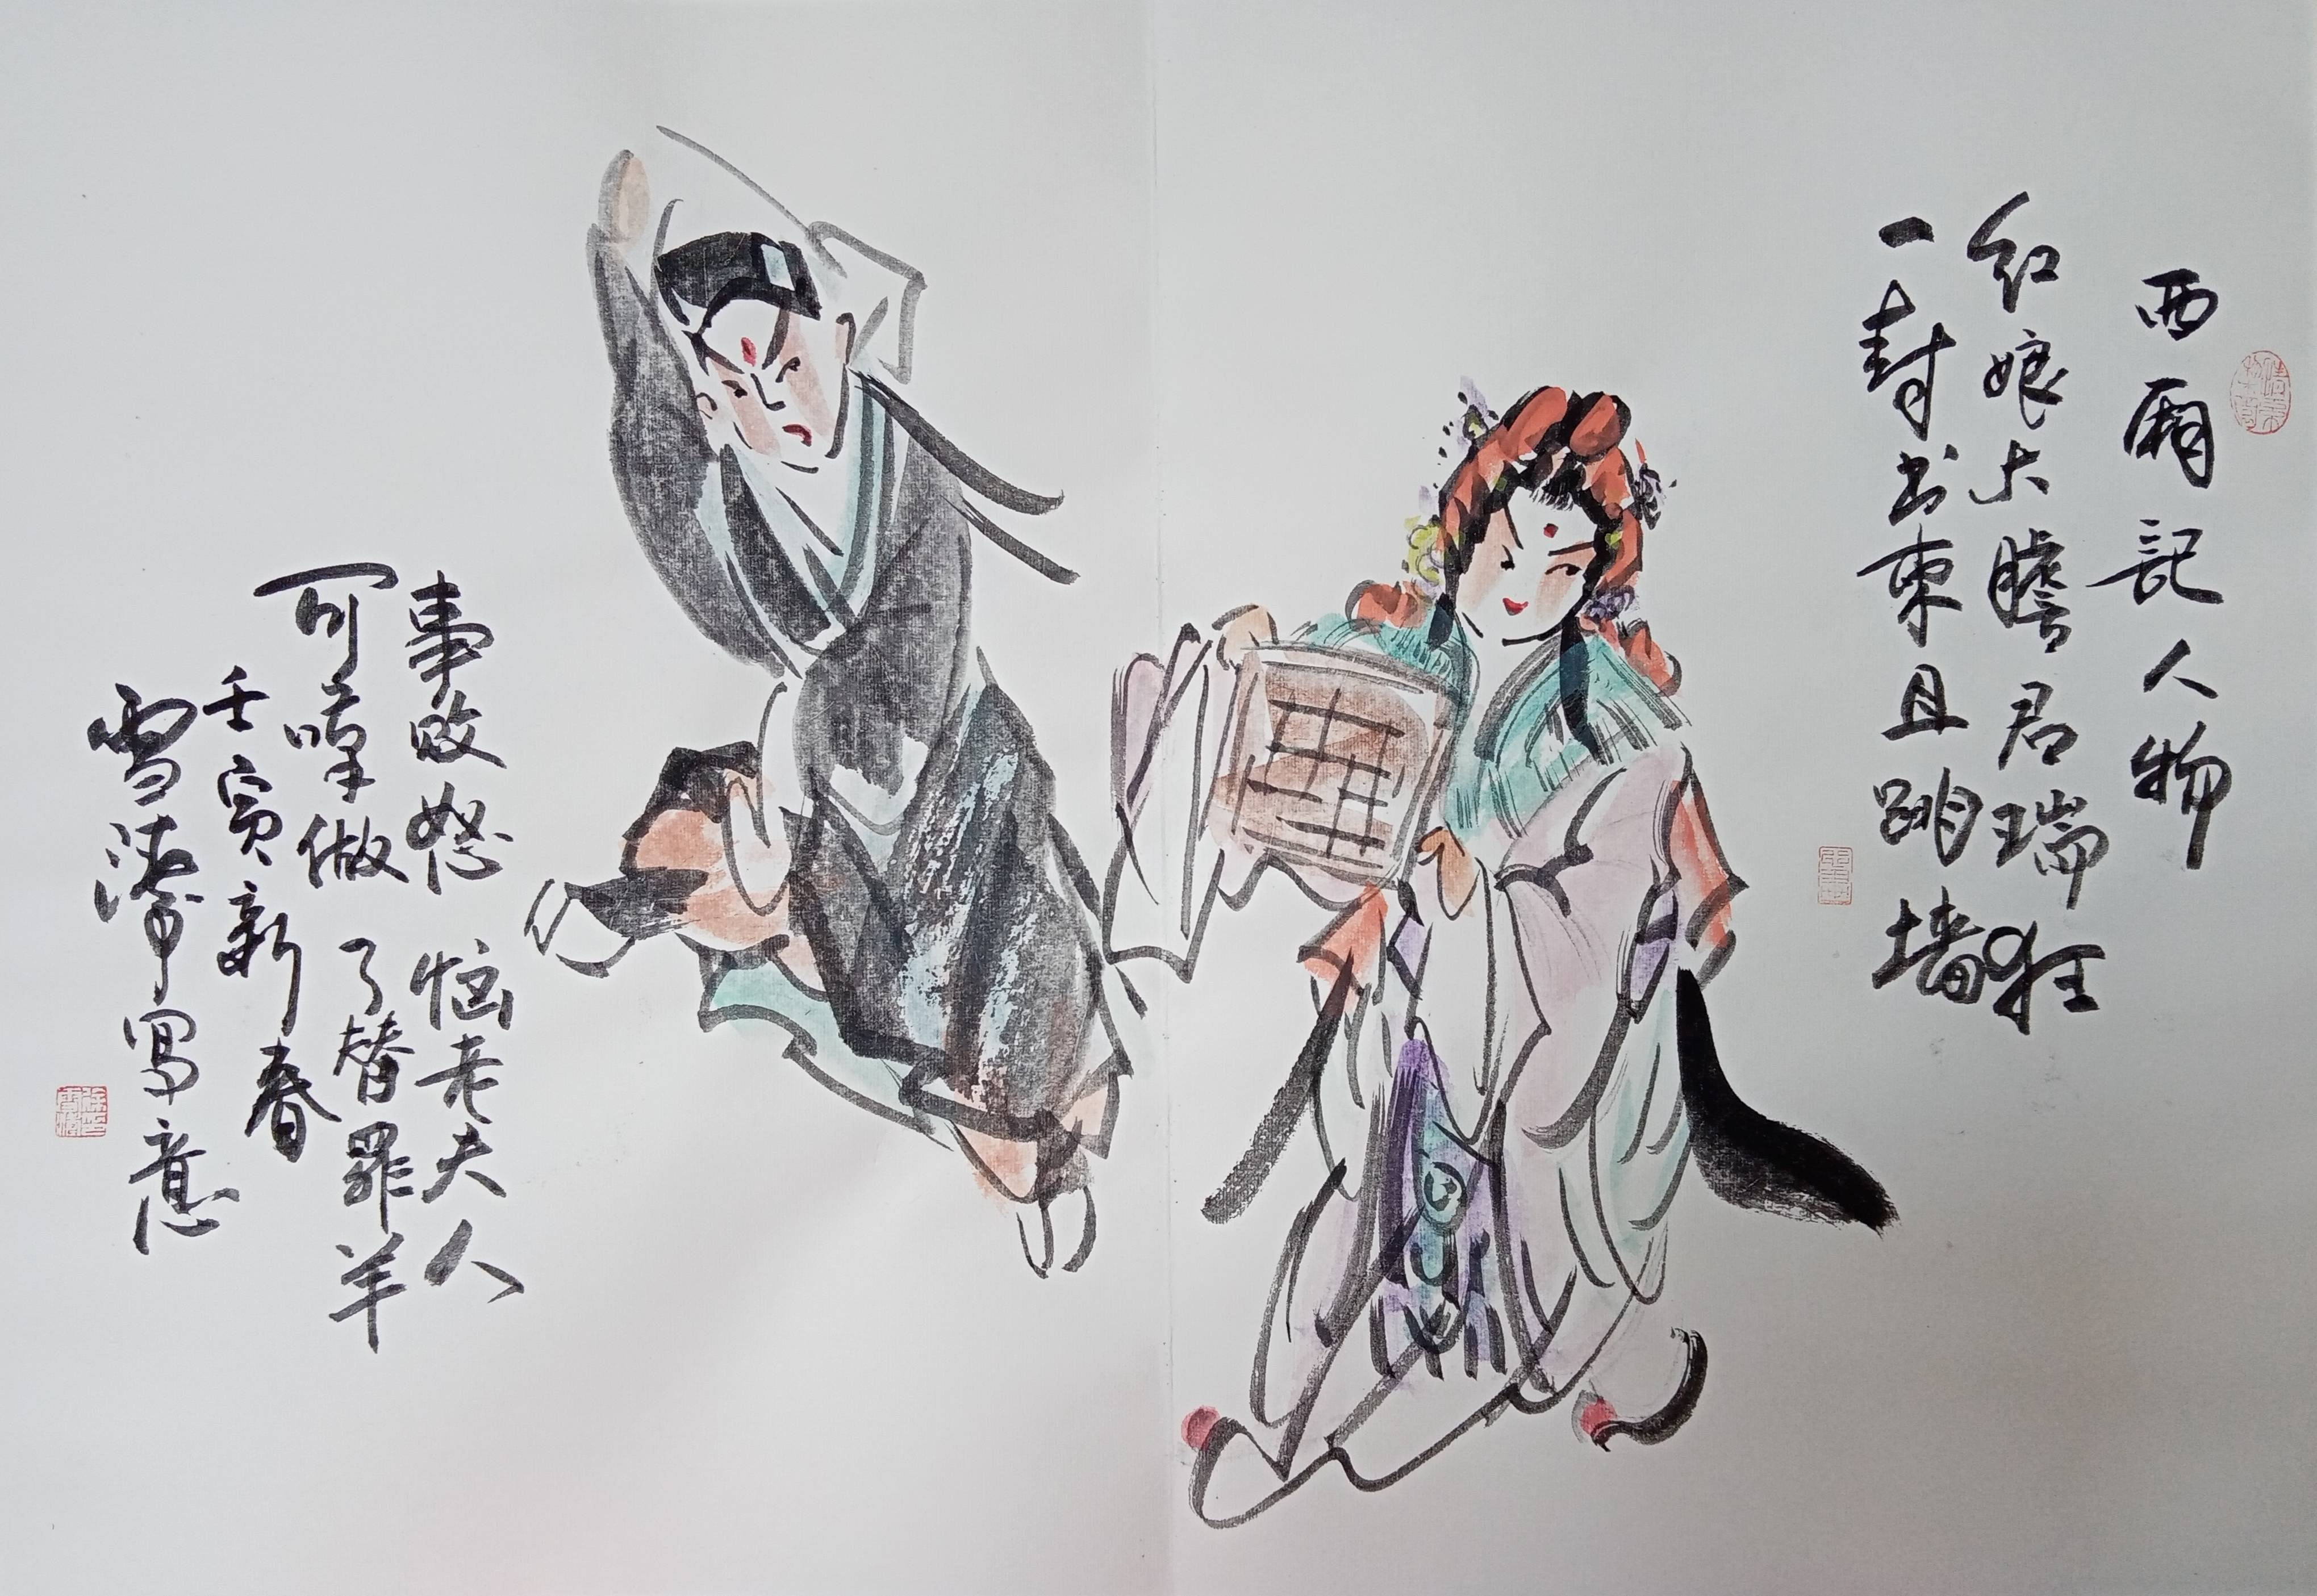 西厢記人物
红娘大膽君瑞狂
一封书柬且跳墙
事败怒恼老夫人
可嘆做了替罪羊
壬寅新春
雪濤寫意